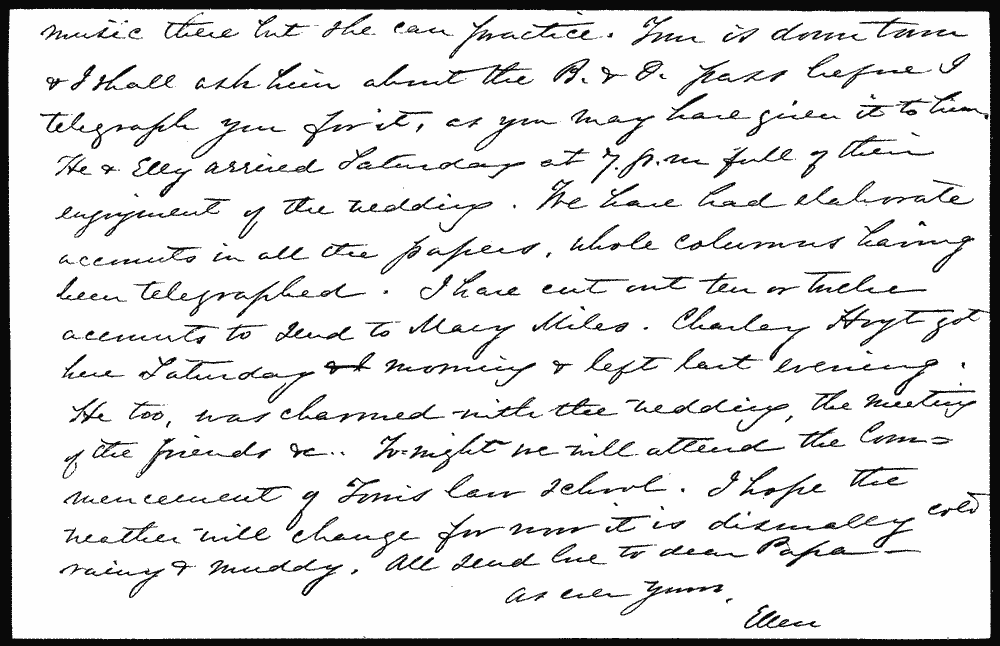 music there but she can practice. Tom is down town
& I shall ask him about the B. & O. pass before I
telegraph you for it, as you may have given it to him.
He & Elly arrived Saturday at 7. p.m full of their
enjoyment of the wedding. We have had elaborate
accounts in all the papers, whole columns having
been telegraphed. I have cut out ten or twelve
accounts to send to Mary Miles. Charley Hoyt got
here Saturday morning & left last evening.
He too, was charmed with the wedding, the meeting
of the friends &c.. To-night we will attend the Com=
mencement of Tom's law school. I hope the
weather will change for now it is dismally cold
rainy & muddy. All send love to dear Papa—
As ever Yours,
Ellen